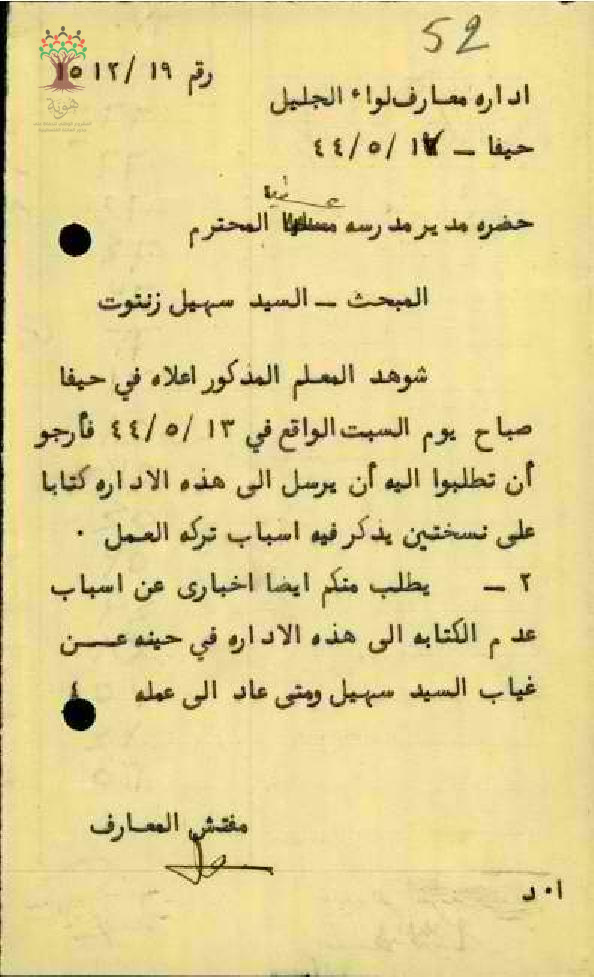 52
رقم ١٩/ ١٥١٢
اداره معارف لواء الجليل
حيفا – ١٧/ ٥/ ٤٤
حضره مدير مدرسه المحترم
المبحث – السيد سهيل زنتوت
شوهد المعلم المذكور اعلاه في حيفا
صباح يوم السبت الواقع في ١٣/ ٥/ ٤٤ فأرجو
أن تطلبوا اليه أن يرسل الى هذه الاداره كتابا
على نسختين يذكر فيه اسباب تركه العمل ٠
٢ – يطلب منكم ايضا اخبارى عن اسباب
عدم الكتابه الى هذه الاداره في حينه عــن
غياب السيد سهيل ومتى عاد الى عمله
مفتش المعارف
ا ٠ د
هوية